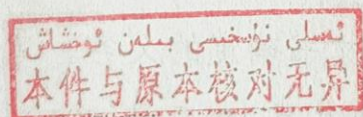 ئەسلى نۇسخىسى بىلەن ئوخشاش
本件与原本核对无异